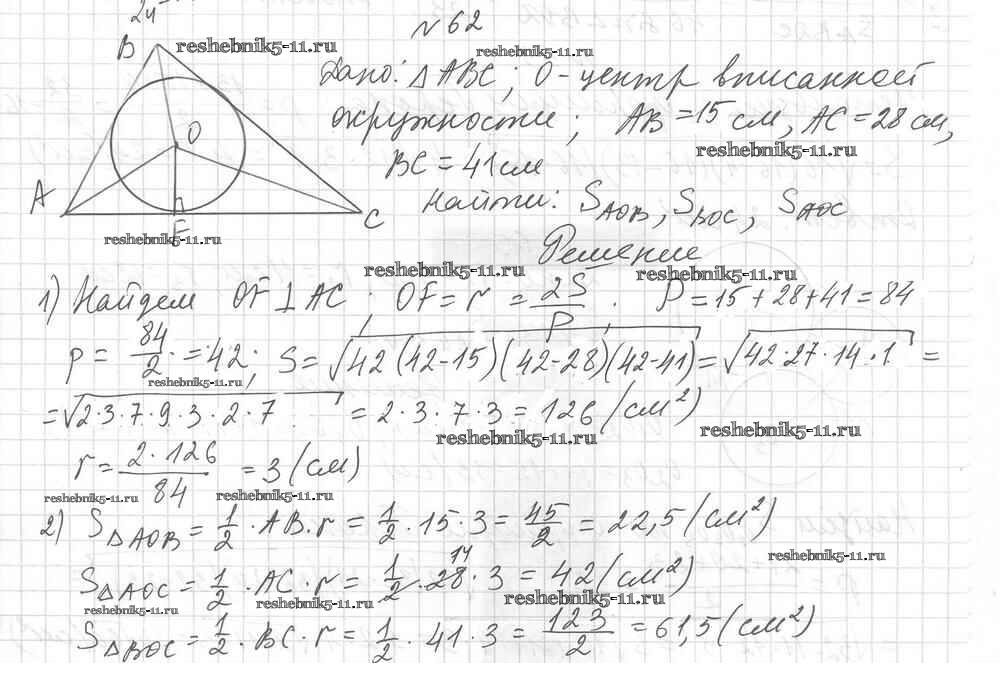 24
N 62
B
reshebnik5-11.ru
reshebnik5-11.ru
Дано: △ABC; O-центр вписанной
окружности; AB=15 см, AC=28 см,
reshebnik5-11.ru
BC=41см
O
A
C
F
reshebnik5-11.ru
Найти: S_AOB, S_BOC, S_AOC
Решение
reshebnik5-11.ru
reshebnik5-11.ru
1) Найдем OF⊥AC; OF=r=2S/P; P=15+28+41=84
p=84/2=42; S=√(42(42-15)(42-28)(42-41))=√(42·27·14·1)=
reshebnik5-11.ru
=√(2·3·7·9·3·2·7)=2·3·7·3=126(см²)
reshebnik5-11.ru
reshebnik5-11.ru
r=2·126/84=3(см)
reshebnik5-11.ru
reshebnik5-11.ru
2) S△AOB=1/2·AB·r=1/2·15·3=45/2=22,5(см²)
reshebnik5-11.ru
14
S△AOC=1/2·AC·r=1/2·28·3=42(см²)
reshebnik5-11.ru
reshebnik5-11.ru
reshebnik5-11.ru
S△BOC=1/2·BC·r=1/2·41·3=123/2=61,5(см²)